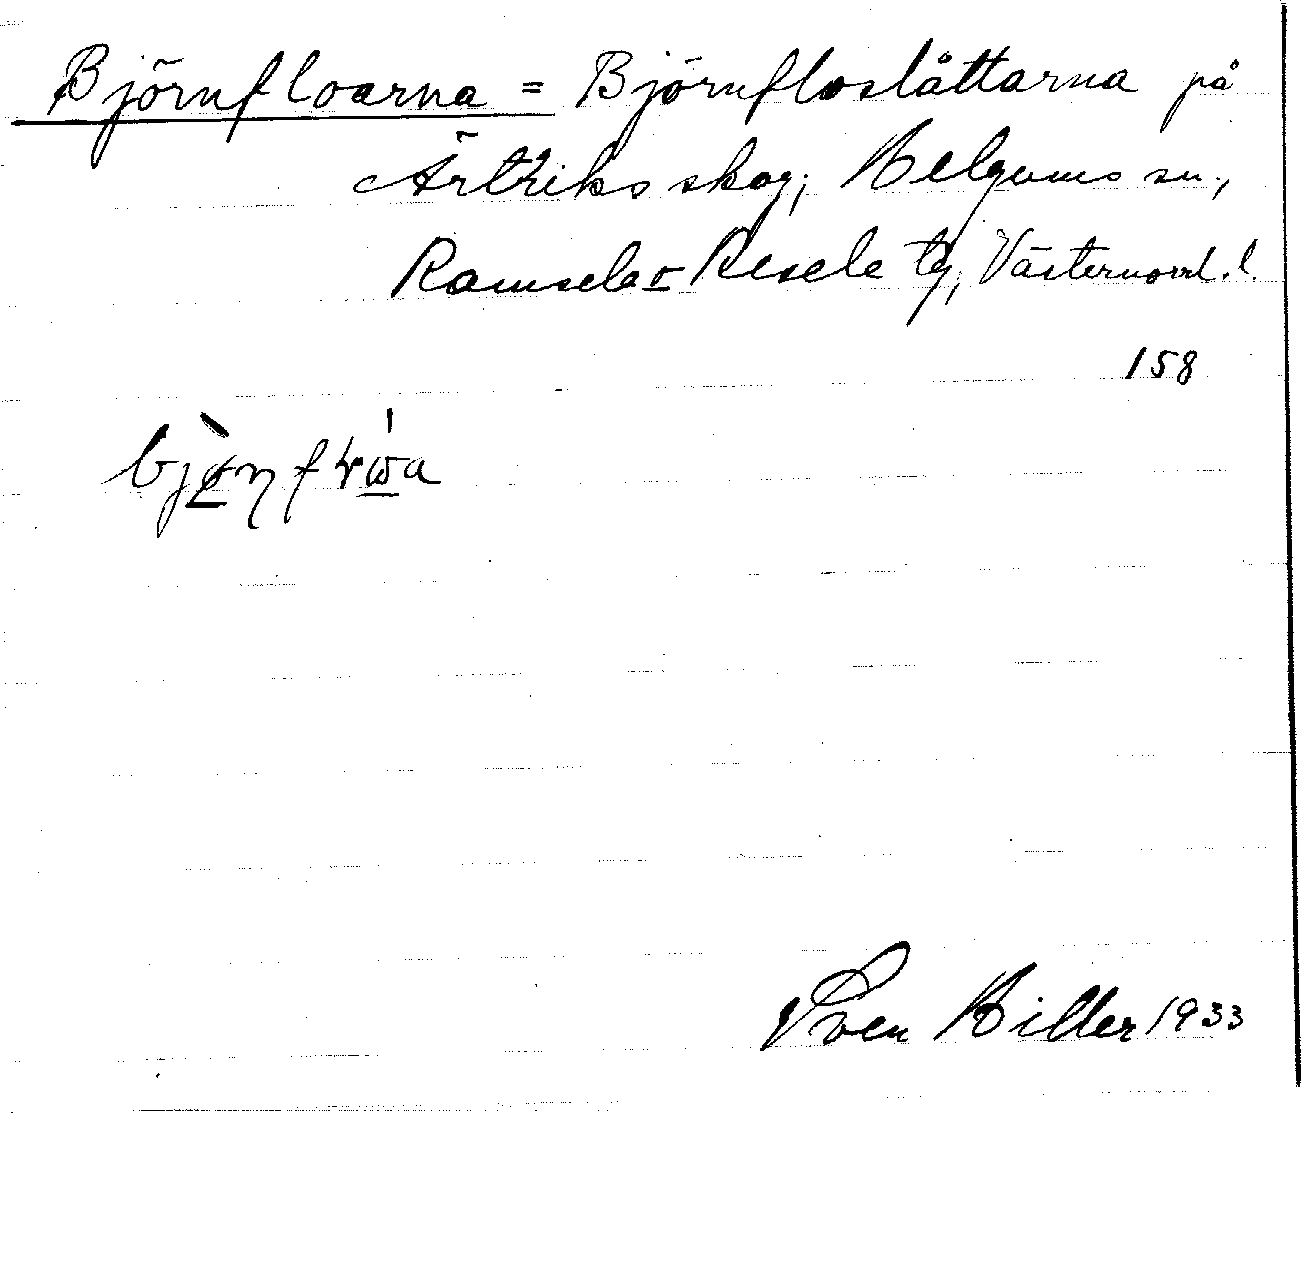 Björnfloarna = Björnfloslåttarna på
Ärtriks skog; Helgums sn.,
Ramsele-Resele tg, Västernorrl. l.
158
Sven Hiller 1933